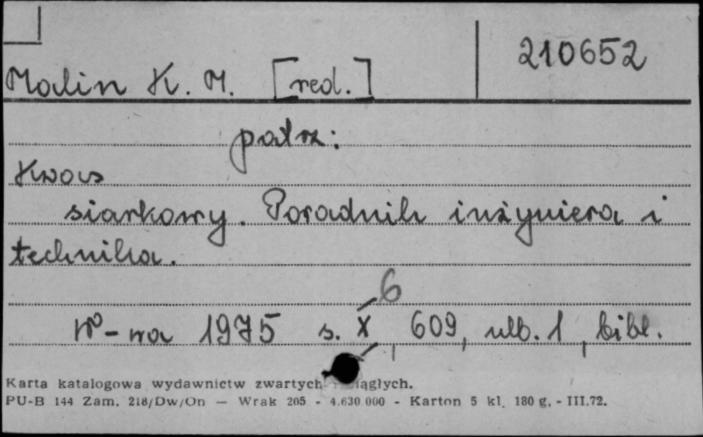 210652
Malin K. M. [red.]
patrz:
Kwas
siarkowy. Poradnik inżyniera i
technika.
6
W-wa 1975 s. X, 609, nlb. 1, bibl.
Karta katalogowa wydawnictw zwartych ciągłych.
PU-B 144 Zam. 218/Dw/On — Wrak 205 - 4.630 000 - Karton 5 kl. 180 g. - III.72.